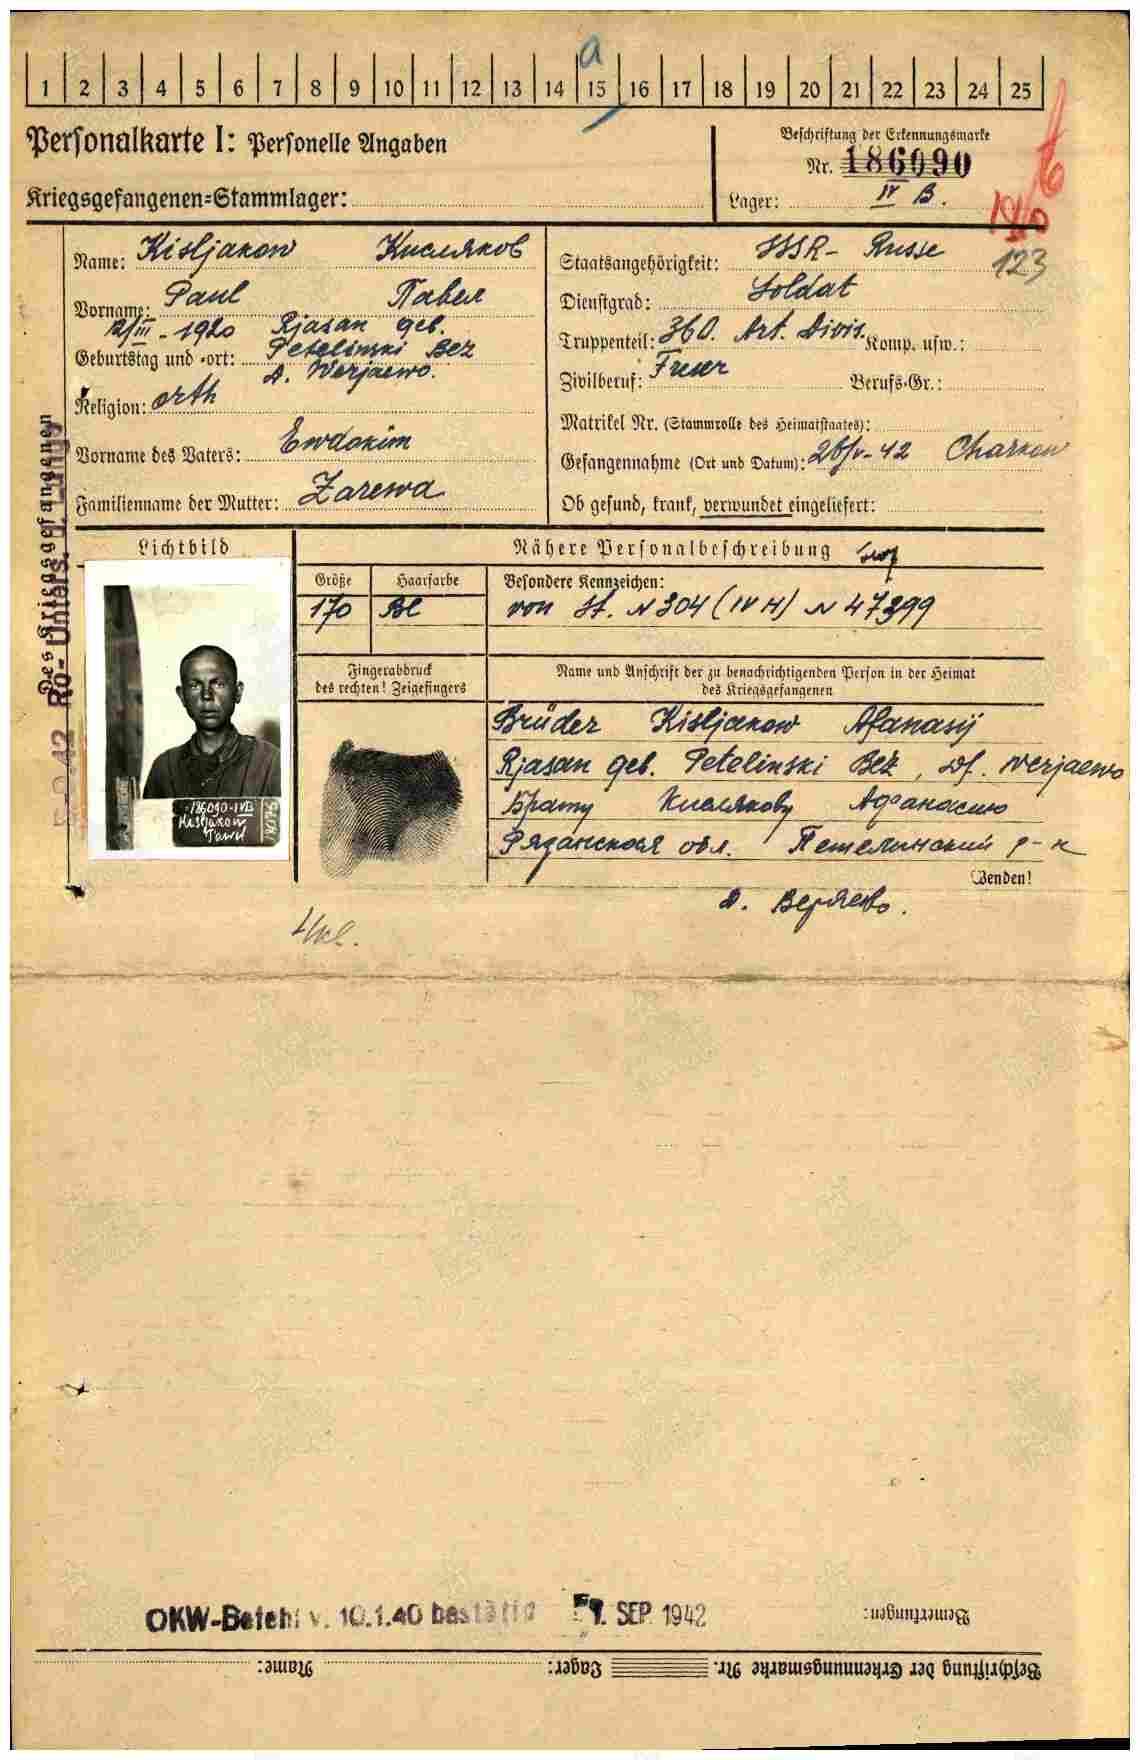 a
1 2 3 4 5 6 7 8 9 10 11 12 13 14 15 16 17 18 19 20 21 22 23 24 25
Personalkarte I: Personelle Angaben
Beschriftung der Erkennungsmarke
Nr. 186090
Kriegsgefangenen-Stammlager:
Lager: IV B.
123
Name: Kisljakow Кисляков
Vorname: Paul Павел
12/III - 1920 Rjasan geb.
Geburtstag und -ort: Petelinski Bez
d. Werjaewo.
Religion: orth
Vorname des Vaters: Ewdokim
Familienname der Mutter: Zarewa
Staatsangehörigkeit: SSSR - Russe
Dienstgrad: Soldat
Truppenteil: 360. Art. Divis. Komp. usw.:
Zivilberuf: Berufs-Gr.:
Matrikel Nr. (Stammrolle des Heimatstaates):
Gefangennahme (Ort und Datum): 26/V - 42 Charkow
Ob gesund, krank, verwundet eingeliefert:
Des Kriegsgefangenen
Lichtbild
186090-IVB
Kisljakow
Pawel
Nähere Personalbeschreibung
Größe Haarfarbe Besondere Kennzeichen:
170 Bl von St. N 304 (IV H) N 47399
Fingerabdruck
des rechten! Zeigefingers
Name und Anschrift der zu benachrichtigenden Person in der Heimat
des Kriegsgefangenen
Brüder Kisljakow Afanasij
Rjasan geb. Petelinski Bez, Df. Werjaewo
Брату Кислякову Афанасию
Рязанская обл. Петелинский р-н
Wenden!
д. Веряево.
OKW-Befehl v. 10.1.40 bestätigt SEP. 1942
Bemerkungen:
Beschriftung der Erkennungsmarke Nr. Lager: Name: